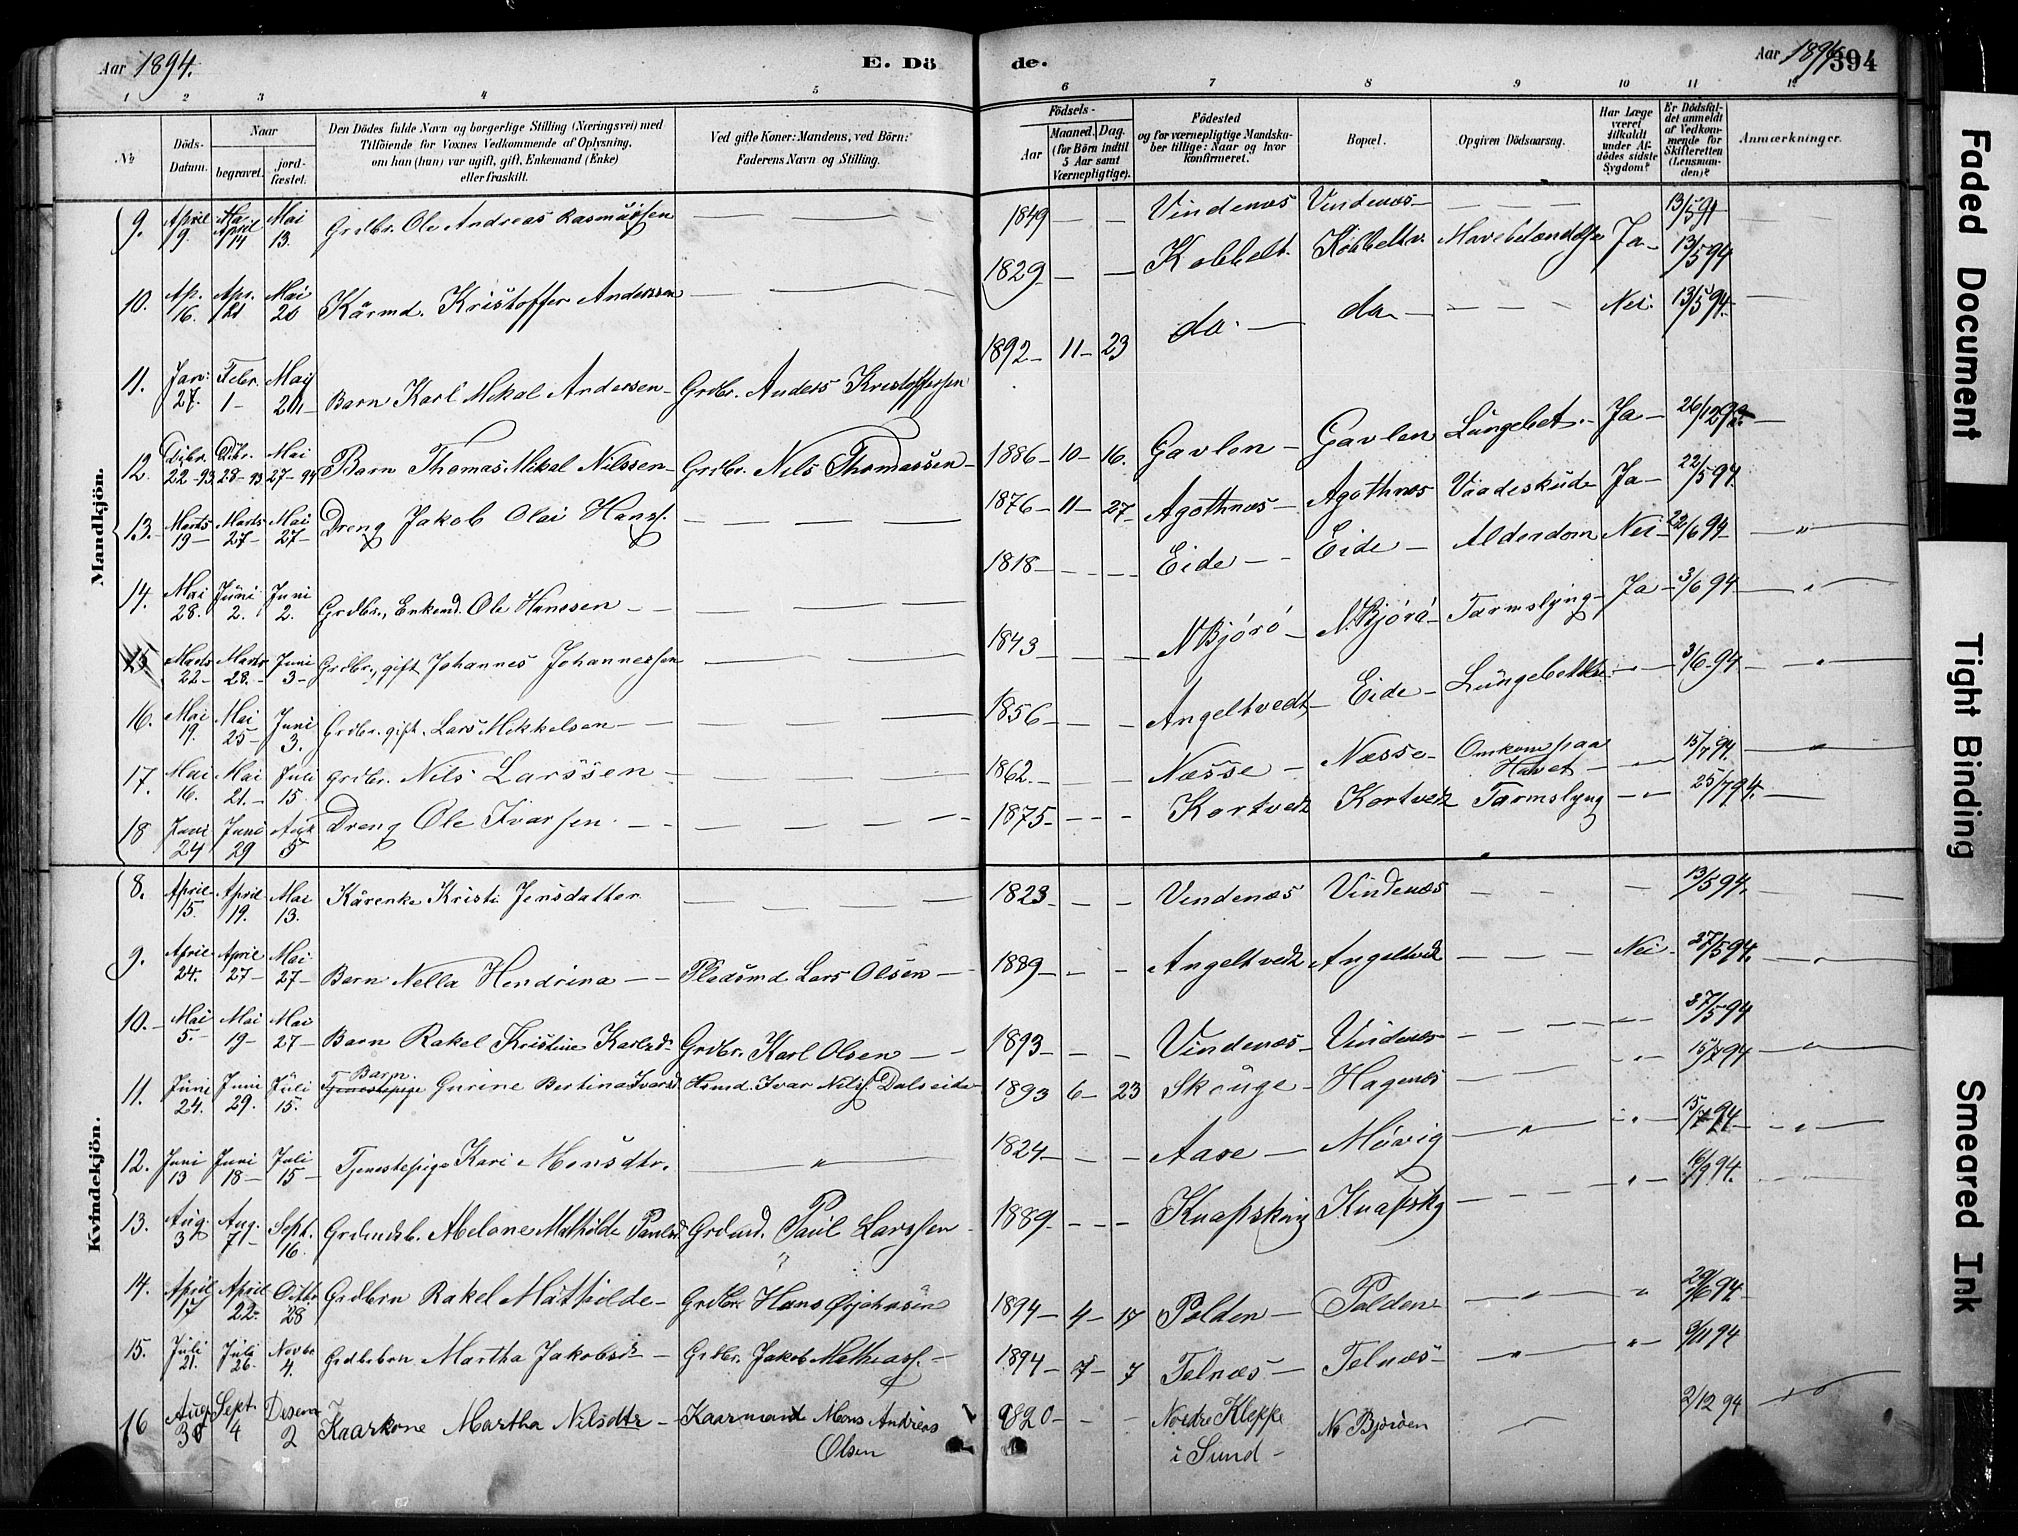 Aar 1894.
E. Dö
de.
Aar 1894
394
1 2 3 4 5 6 7 8 9 10 11 12
No
Döds-Datum.
Naar
begravet.
jord-fæstet.
Den Dödes fulde Navn og borgerlige Stilling (Næringsvei) med
Tilföiende for Voxnes Vedkommende af Oplysning,
om han (hun) var ugift, gift, Enkemand (Enke)
eller fraskilt.
Ved gifte Koner: Mandens, ved Börn:
Faderens Navn og Stilling.
Födsels-
Aar
Maaned. Dag.
(for Börn indtil
5 Aar samt
Værnepligtige).
Födested
og for værnepligtige Mandska-
ber tillige: Naar og hvor
konfirmeret.
Bopæl.
Opgiven Dödsaarsag.
Har Læge
været
tilkaldt
under Af-
dödes sidste
Sygdom?
Er Dödsfal-
det anmeldt
af Vedkom-
mende for
Skifteretten
(Lensman-
den)?
Anmærkninger.
Mandkjön.
9. April 9. April 14 Mai 13. Grdbr. Ole Andreas Rasmussen — 1849 — — Vindenes Vindenes — 13/5 94
10. Ap. 16. Apr. 21 Mai 20 Kårmd. Kristoffer Anderssen — 1829 — — Kobbelt. Kobbeltv. Mavebetændelse Ja — 13/5 94
11. Jan: 27. Febr. 1 — Mai 20 Barn Karl Mikal Andersen — Grdbr. Anders Kristoffersen 1892 — 11 — 23 do. — do — Nei. 13/5 94.
12. Dcbr. 22 - 93 Dcbr. 28 - 93 Mai 27 - 94 Barn Thomas Mikal Nilssen — Grdbr. Nils Thomassen — 1886 — 10 — 16. Gavlen — Gavlen Lungebet. — Ja — 26/12 93
13. Marts 19 — Marts 27 — Mai 27 — Dreng Jakob Olai Hanss. — 1876 — 11 — 27 Agothnes — Agothnes Vaadeskud Ja — 22/5 94
14. Mai 28. Juni 2. Juni 2. Grdbr., Enkemd. Ole Hanssen — 1818 — Eide — Eide — Alderdom Nei — 22/6 94 — "
15 Marts 22 — Marts 28. — Juni 3 — Grdbr., gift Johannes Johannessen — 1843 — N Bjórö — N. Bjórö — Tarmslyng — Ja — 3/6 94 — "
16. Mai 19. Mai 25 — Juni 3. Grdbr. gift. Lars Mikkelsen — 1856 — Angeltvedt Eide — — " — 3/6 94 — "
17. Mai 16. Mai 21. — Juli 15 grdbr. Nils Larssen — 1862. — Næsse — Næsse — Omkom paa Havet — — " — 15/7 94. — "
18 Juni 24 Juni 29 Aug 5 Dreng Ole Ivarsen. — 1875 — Kortvedt Kortvedt Tarmslyng — " — 25/7 94.
Kvindekjön.
8. April 15. April 19. Mai 13. Kårenke Kristi Jensdatter — 1823 — Vindenæs Vindenæs — 13/5 94
9. April 24. April 27 — Mai 27 — Barn Nella Hendrina — Pladsmd Lars Olsen — 1889 — Angeltvedt Angeltvedt — Nei — 27/5 94. — "
10. — Mai 5. — Mai 19 — Mai 27 — Barn Rakel Kristine Karlsd. Grdbr. Karl Olsen — 1893 — Vindenæs — Vindenæs — 27/5 94
11. Juni 24. Juni 29. Juli 15. Tjenestepige Barn. Gurine Bertina Ivarsd. Hsmd. Ivar Nilss. Dalseide 1893 6 — 23 Skouge — Hagenæs — " 15/7 94 — "
12. Juni 13 Juni 18 — Juli 15 — Tjenestepige Kari Monsdtr. — " — 1824 — Aase — Møvig — " — 15/7 94 — "
13. Aug. 3 Aug. 7 — Sept. 16. Melone Mathilde Paulsd. Paul Larssen — 1889 — Knapskog Knapskog — " — 16/9 94.
14. April 17 April 22. Octbr 28 Grdbrn Rakel Mathilde — Grdbr. Hans 1894 — 4 — 17 Polden — Polden — " — " 29/6 94.
15. Juli 21. Juli 26. Novbr 4. Grdbrbrn Martha Jakobsd — Grdbr. Jakob Mathiass. — 1894 — 7 — 7 Telnæs — Telnæs — " — " 3/11 94
16 Aug 30 Sept 4 Desem 2 Kaarkone Martha Nilsdtr — Kaarmand Mons Andreas Olsen 1820 — Nordre Kleppe i Sund — No Bjorøen — 2/12 94
Faded Document
Tight Binding
Smeared Ink